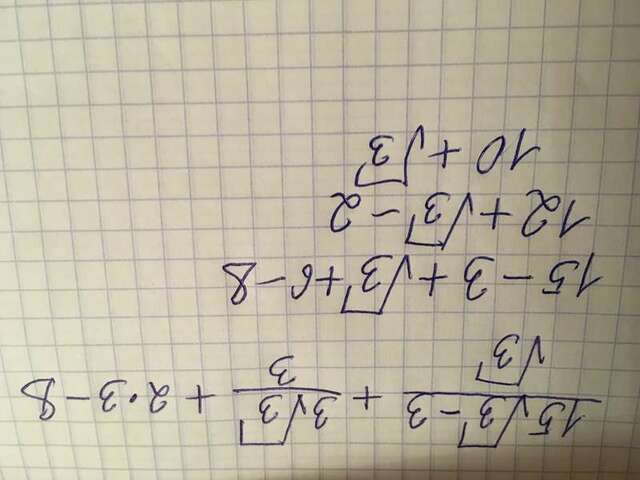 15√3 - 3 / √3 + 3√3 / 3 + 2·3 - 8
15 - 3 + √3 + 6 - 8
12 + √3 - 2
10 + √3